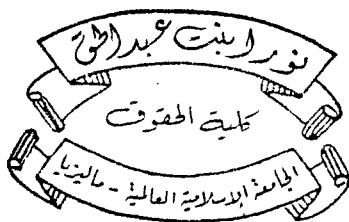 نورا بنت عبد الحق
كلية الحقوق
الجامعة الإسلامية العالمية - ماليزيا